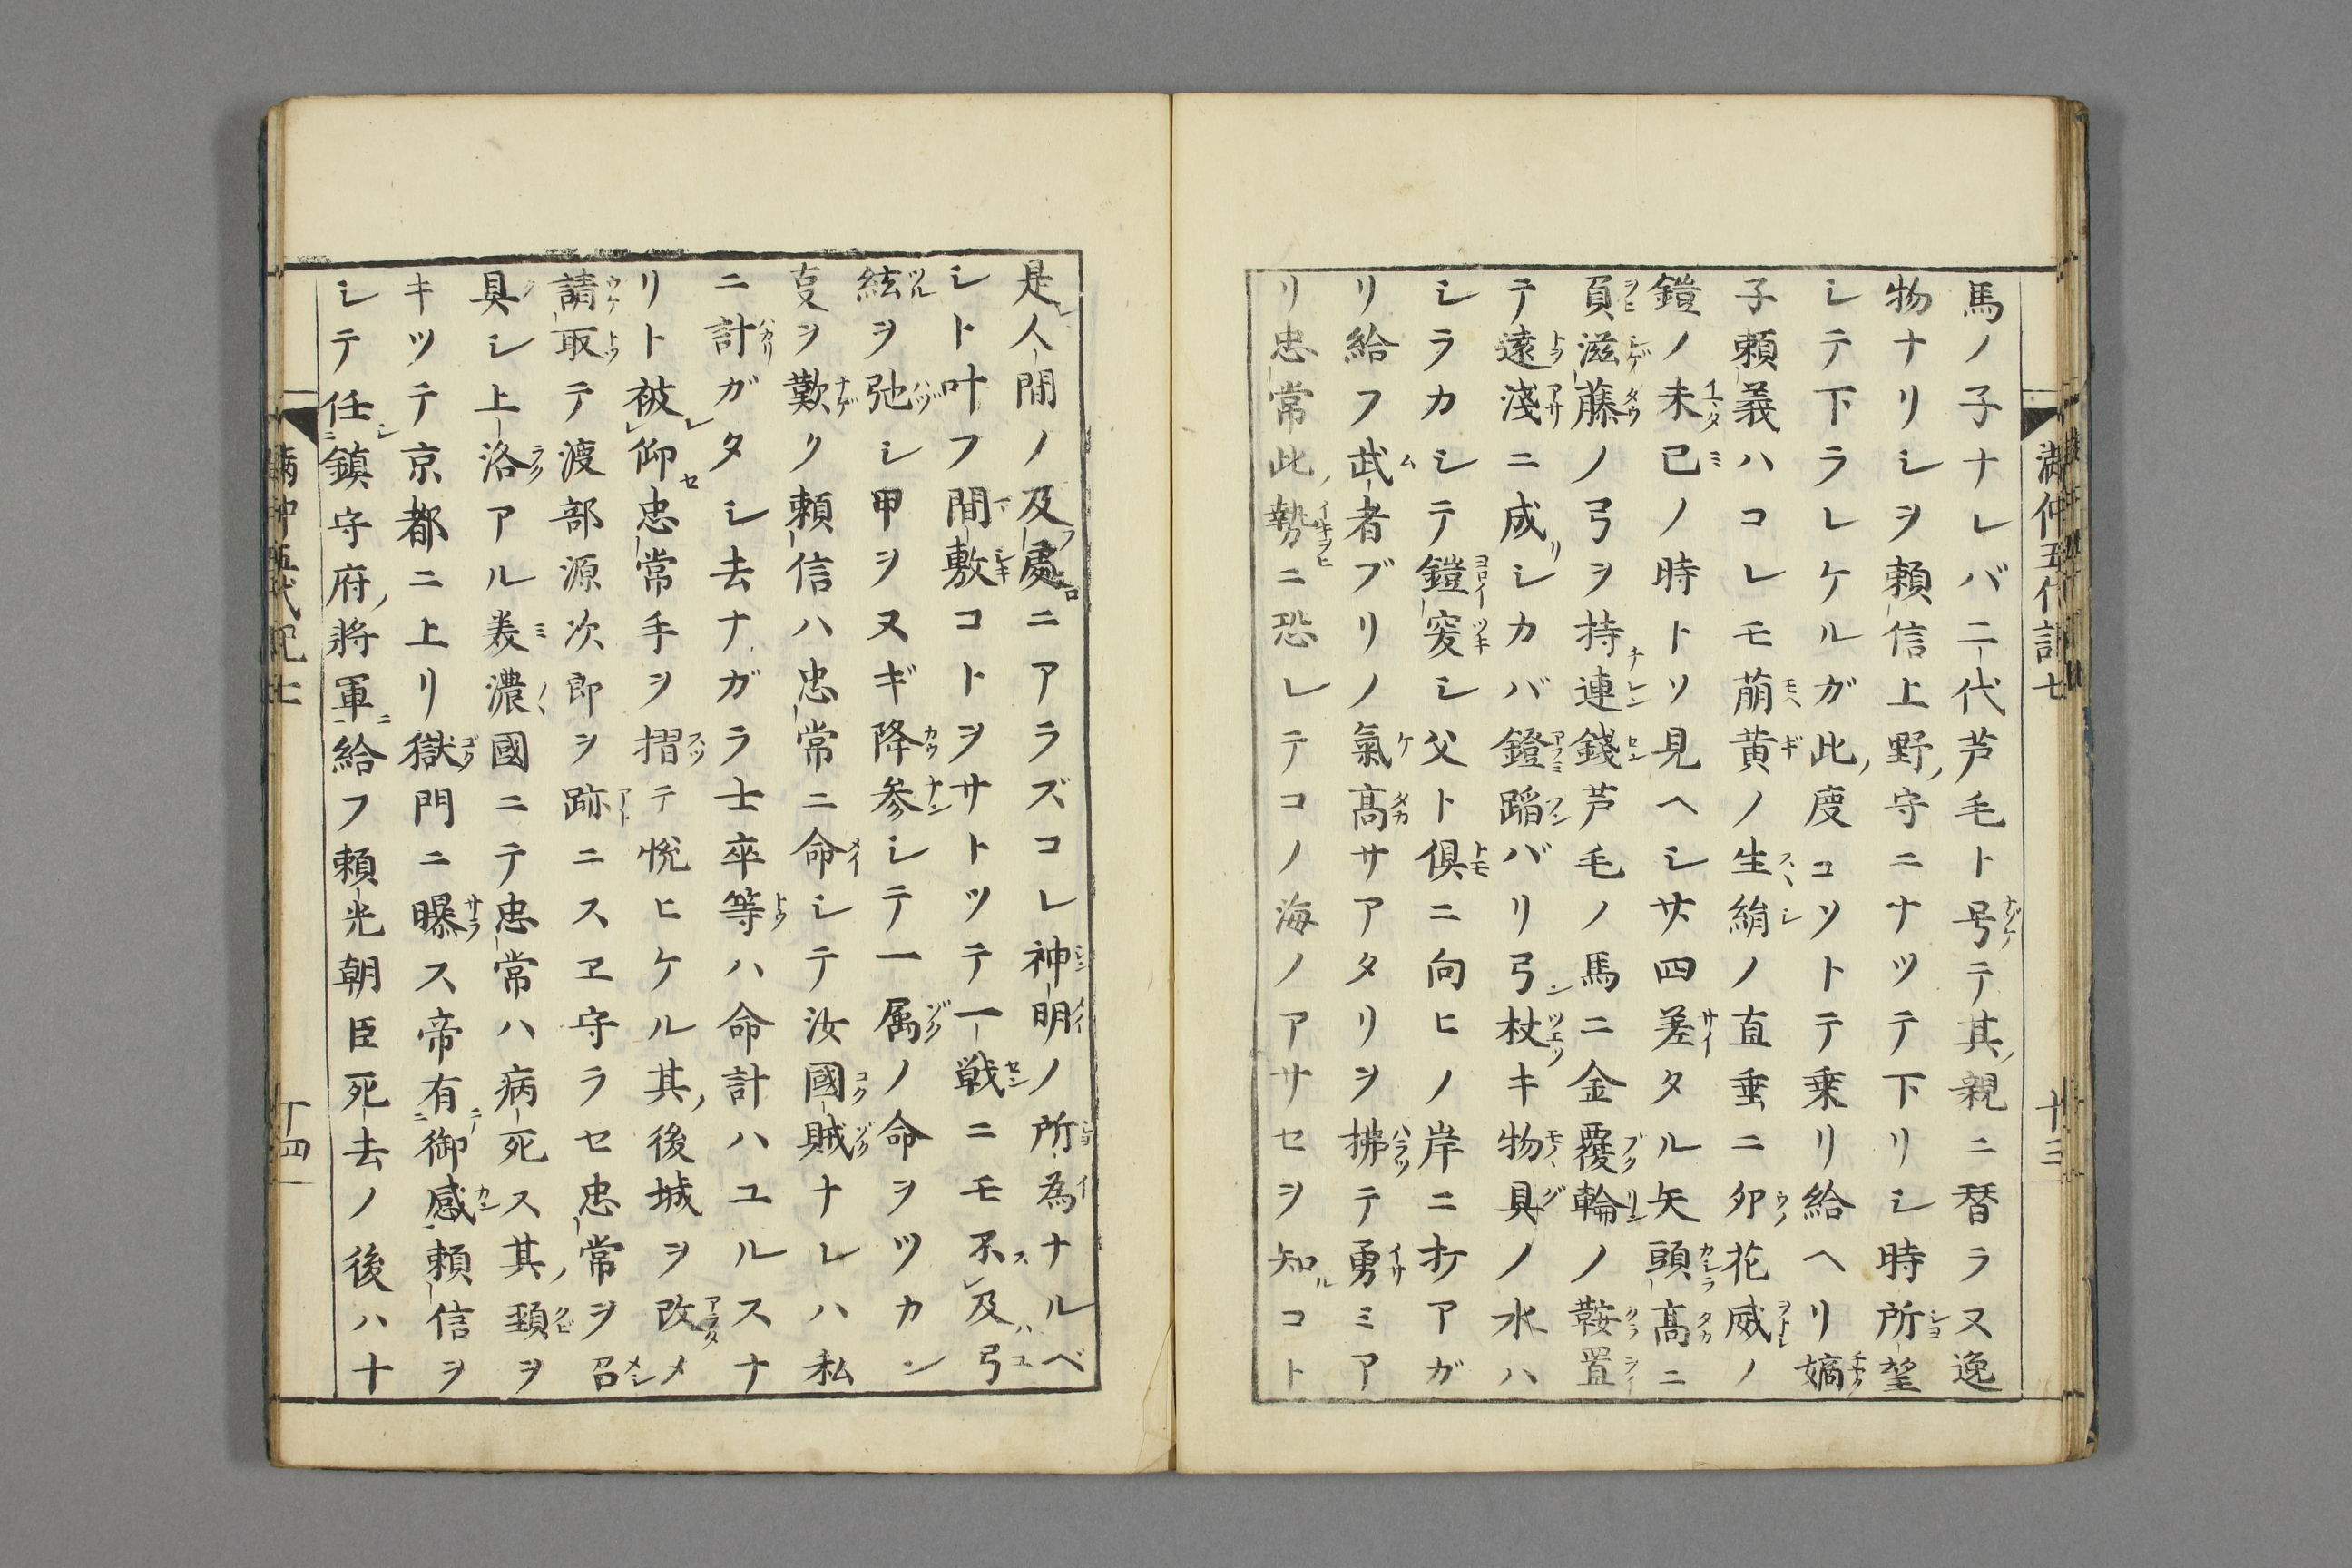 馬ノ子ナレバ二代芦毛ト号テ其親ニ替ラヌ逸
物ナリシヲ頼信上野守ニナツテ下リシ時所望
シテ下ラレケルガ此度コソトテ乗リ給ヘリ嫡
子頼義ハコレモ萠黄ノ生絹ノ直垂ニ卯花威ノ
鎧ノ未已ノ時トソ見ヘシ廿四差タル矢頭髙ニ
負滋藤ノ弓ヲ持連錢芦毛ノ馬ニ金覆輪ノ鞍置
テ遠淺ニ成シカバ鐙蹈バリ弓杖キ物具ノ水ハ
シラカシテ鎧突シ父ト俱ニ向ヒノ岸ニ打アガ
リ給フ武者ブリノ氣髙サアタリヲ拂テ勇ミア
リ忠常此勢ニ恐レテコノ海ノアサセヲ知コト
満仲五代記七
十三
是人間ノ及處ニアラズコレ神明ノ所為ナルベ
シト叶フ間敷コトヲサトツテ一戦ニモ不及弓
絃ヲ弛シ甲ヲヌギ降参シテ一属ノ命ヲツカン
叓ヲ歎ク頼信ハ忠常ニ命シテ汝國賊ナレハ私
ニ計ガタシ去ナガラ士卒等ハ命計ハユルスナ
リト被仰忠常手ヲ摺テ悦ヒケル其後城ヲ改メ
請取テ渡部源次郎ヲ跡ニスヱ守ラセ忠常ヲ召
具シ上洛アル美濃國ニテ忠常ハ病死ス其頚ヲ
キツテ京都ニ上リ獄門ニ曝ス帝有御感頼信ヲ
シテ任鎮守府将軍給フ頼光朝臣死去ノ後ハ十
満仲五代記七
十四